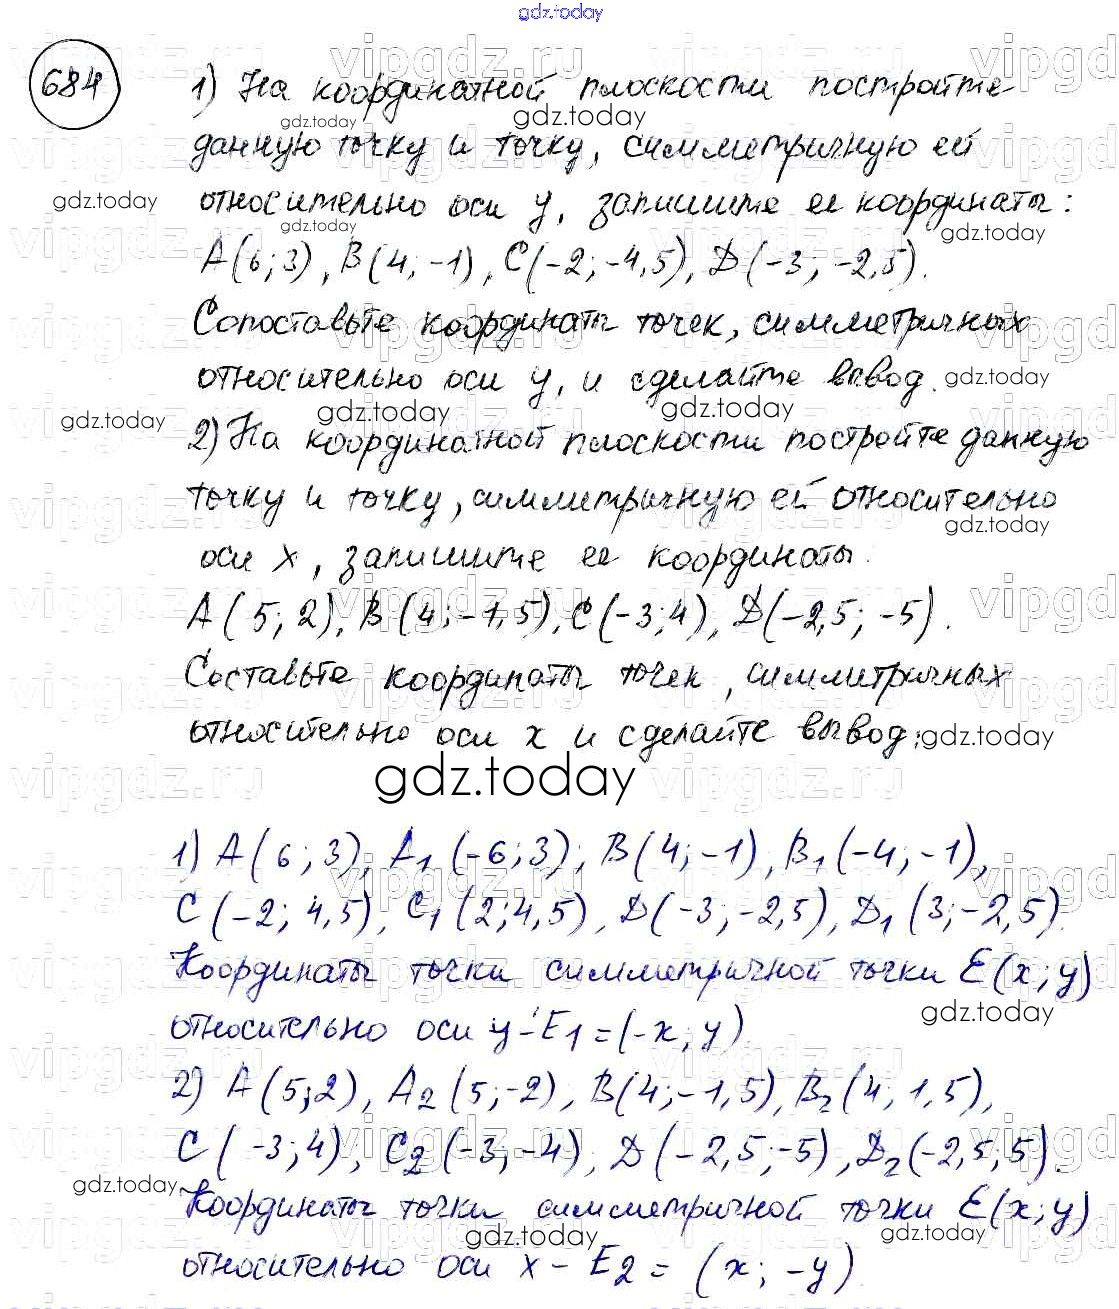 gdz.today
684
1) На координатной плоскости постройте
данную точку и точку, симметричную ей
относительно оси y, запишите ее координаты:
A(6; 3), B(4; -1), C(-2; -4,5), D(-3; -2,5).
Сопоставьте координаты точек, симметричных
относительно оси y, и сделайте вывод.
2) На координатной плоскости постройте данную
точку и точку, симметричную ей относительно
оси x, запишите ее координаты:
A(5; 2), B(4; -1,5), C(-3; 4), D(-2,5; -5).
Составьте координаты точек, симметричных
относительно оси x и сделайте вывод.
gdz.today
1) A(6; 3), A1(-6; 3), B(4; -1), B1(-4; -1),
C(-2; 4,5), C1(2; 4,5), D(-3; -2,5), D1(3; -2,5).
Координаты точки симметричной точки E(x; y)
относительно оси y - E1 = (-x; y)
2) A(5; 2), A2(5; -2), B(4; -1,5), B2(4, 1,5),
C(-3; 4), C2(-3; -4), D(-2,5; -5), D2(-2,5; 5).
Координаты точки симметричной точки E(x; y)
относительно оси x - E2 = (x; -y)